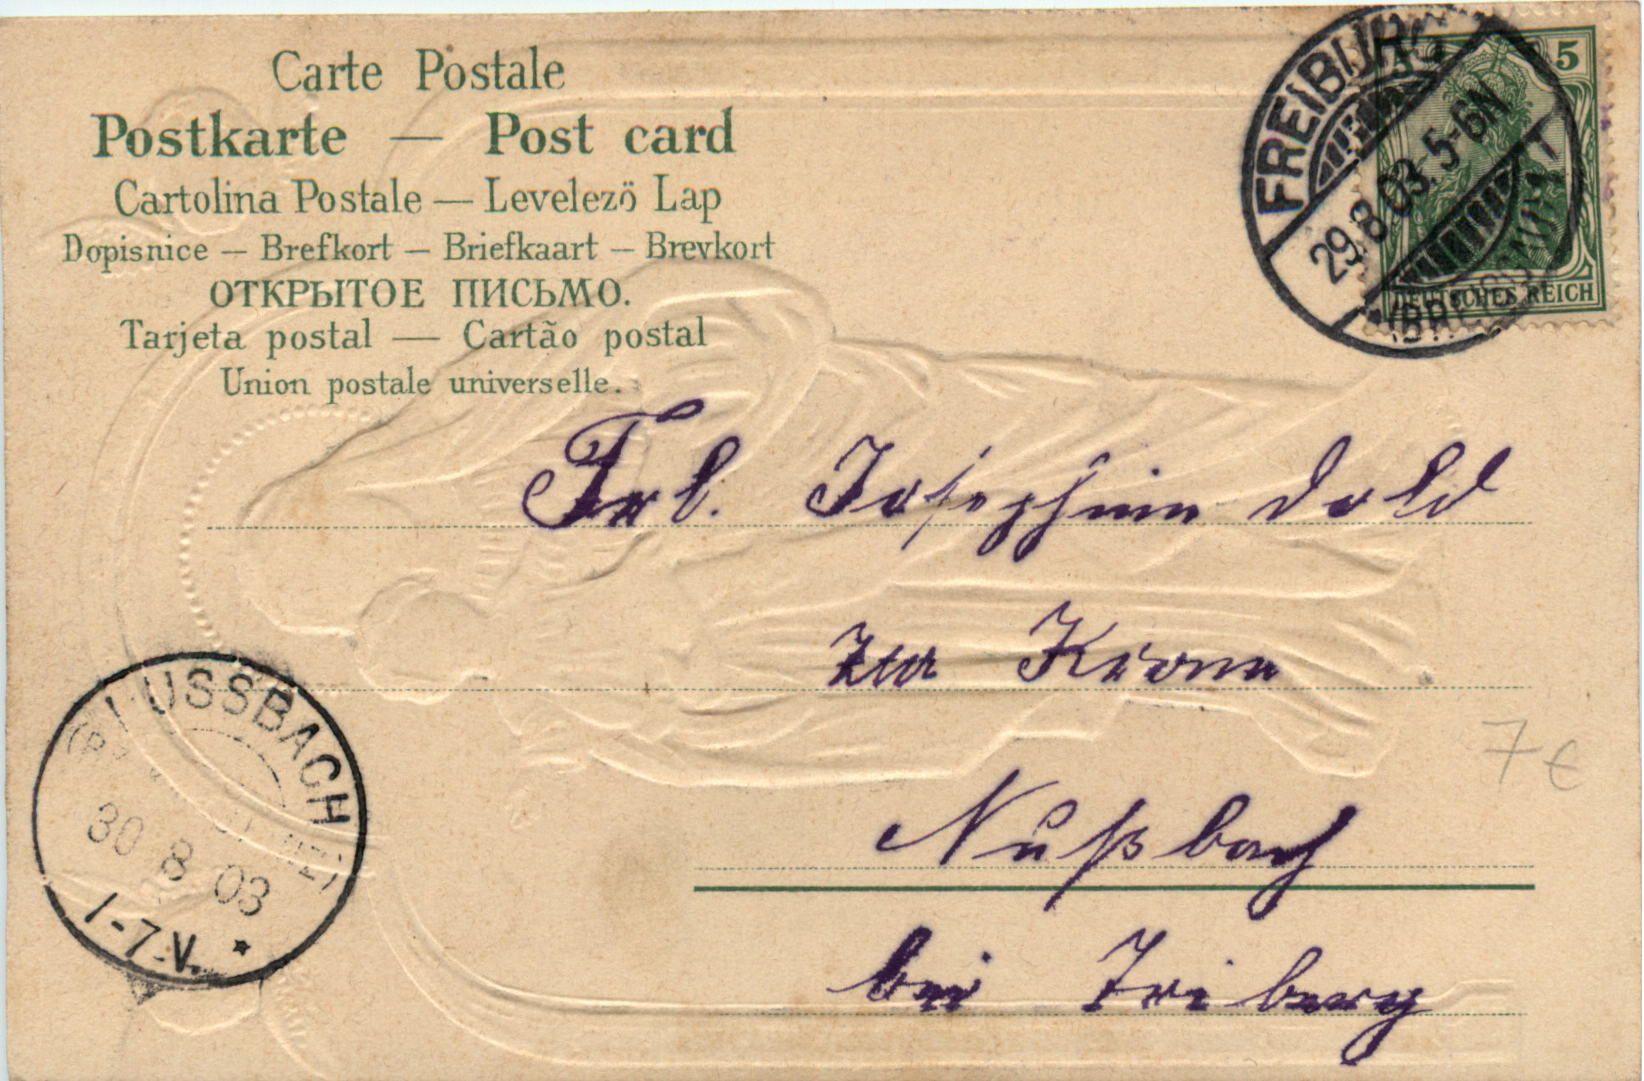 Carte Postale
Postkarte — Post card
Cartolina Postale — Levelezö Lap
Dopisnice — Brefkort — Briefkaart — Brevkort
ОТКРЫТОЕ ПИСЬМО.
Tarjeta postal — Cartão postal
Union postale universelle.
FREIBURG
29.8.03.5-6N
5
DEUTSCHES REICH
Frl. Josephine Dold
zur Krone
7€
Nußbach
bei Triberg
NUSSBACH
30 8 03
1-7.V.